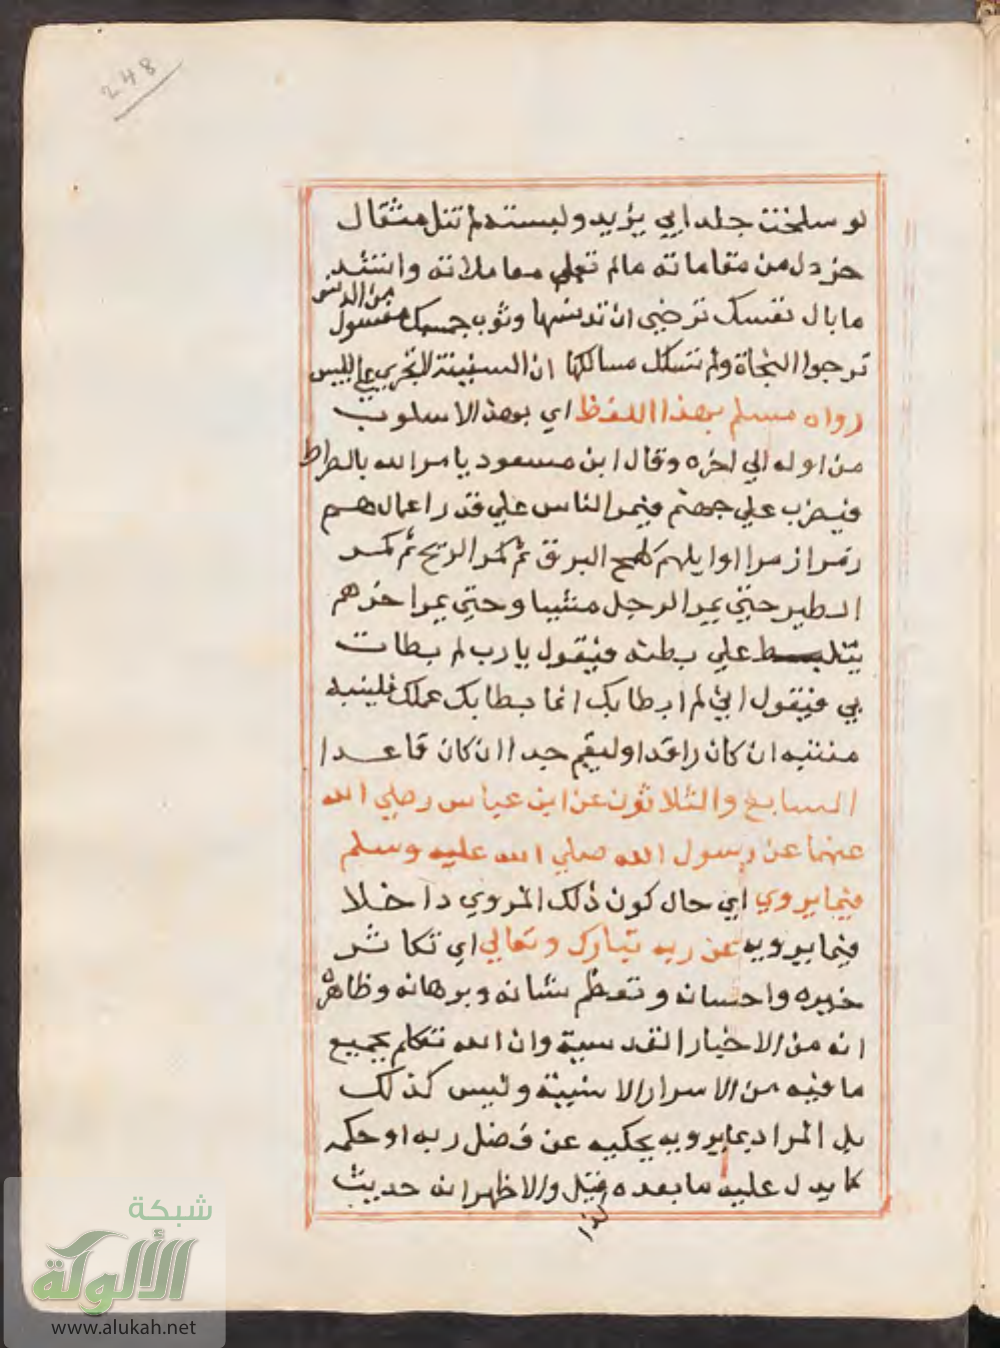 248
لو سلخت جلد ابي يزيد ولبسته لم تنل مثقال
خردل من مقاماته مالم تعلي معاملاته وانشد
ما بال نفسك ترضي ان تدنسها وثوب جسمك مغسول من الدنس
ترجوا النجاة ولم تسلك مسالكها ان السفينة لا تجري علي اليبس
رواه مسلم بهذا اللفظ اي بهذا الاسلوب
من اوله الي اخره وقال ابن مسعود يامر الله بالصراط
فيضرب علي جهنم فيمر الناس علي قدر اعمالهم
زمرا زمرا اوايلهم كلمح البرق ثم كمر الريح ثم كمر
الطير حتي يمر الرجل مشيا وحتي يمر اخرهم
يتلبط علي بطنه فيقول يا رب لم بطات
بي فيقول اني لم ابطا بك انما بطا بك عملك فلينبه
منتبه ان كان راقدا وليقم جدا ان كان قاعدا
السابع والثلاثون عن ابن عباس رضي الله
عنهما عن رسول الله صلي الله عليه وسلم
فيما يروي اي حال كون ذلك المروي داخلا
فيما يرويه عن ربه تبارك وتعالي اي تكاثر
خيره واحسانه وتعظم شانه وبرهانه وظاهره
انه من الاخبار القدسية وان الله تتكلم بجميع
ما فيه من الاسرار الانسية وليس كذلك
بل المراد بما يرويه يحكيه عن فضل ربه او حكمه
كما يدل عليه ما بعده كذا قيل والاظهر انه حديث
شبكة
الألوكة
www.alukah.net